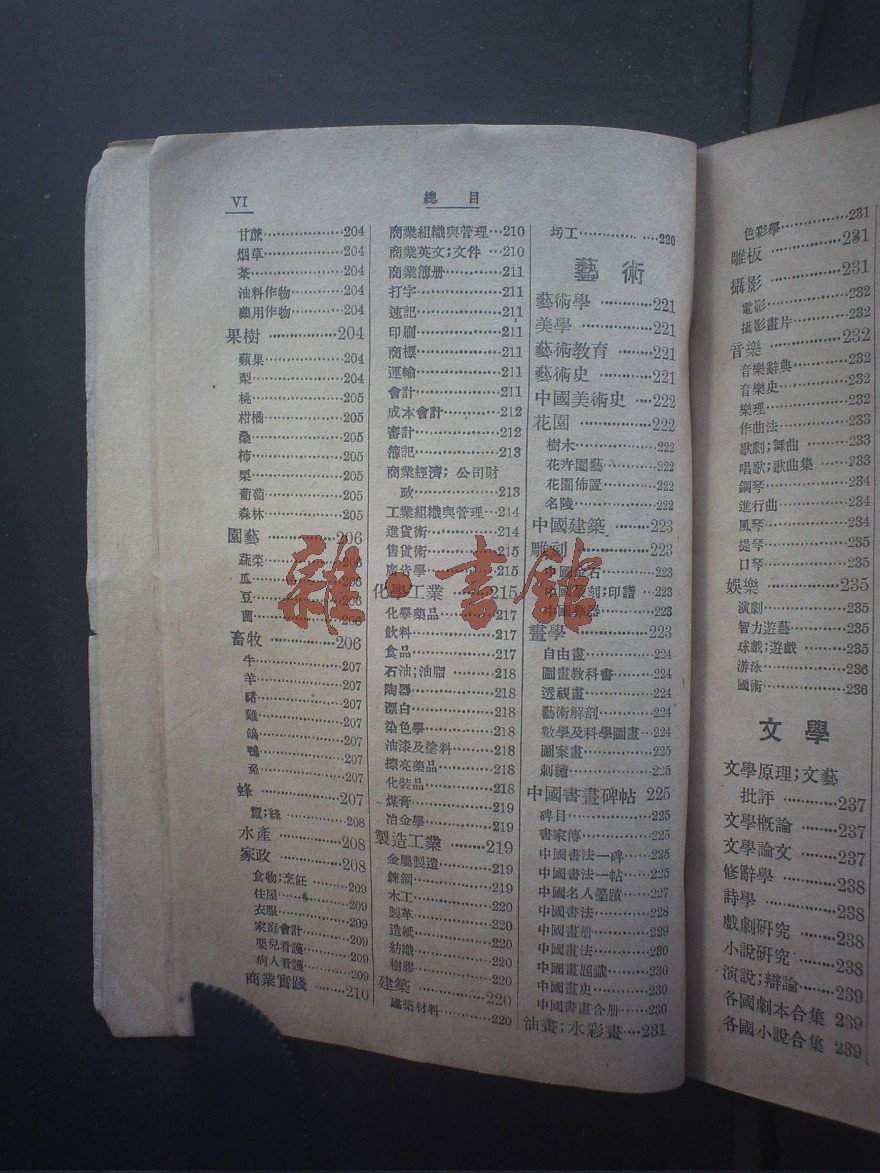 VI
總目
甘蔗 204
烟草 204
茶 204
油料作物 204
藥用作物 204
果樹 204
蘋果 204
梨 204
桃 205
柑橘 205
桑 205
柿 205
栗 205
葡萄 205
森林 205
園藝 206
蔬菜 206
瓜 206
豆 206
菌 206
畜牧 206
牛 207
羊 207
豬 207
雞 207
鴿 207
鴨 207
兔 207
蜂 207
蠶;絲 208
水產 208
家政 208
食物;烹飪 209
住屋 209
衣服 209
家庭會計 209
嬰兒看護 209
病人看護 209
商業實踐 210
商業組織與管理 210
商業英文;文件 210
商業簿册 211
打字 211
速記 211
印刷 211
商標 211
運輸 211
會計 211
成本會計 212
審計 212
簿記 213
商業經濟;公司財
政 213
工業組織與管理 214
進貨術 214
售貨術 215
廣告學 215
化學工業 215
化學藥品 217
飲料 217
食品 217
石油;油脂 218
陶器 218
漂白 218
染色學 218
油漆及塗料 218
擦亮藥品 218
化裝品 218
煤膏 219
冶金學 219
製造工業 219
金屬製造 219
鍊鋼 219
木工 220
製革 220
造紙 220
紡織 220
樹膠 220
建築 220
建築材料 220
圬工 220
藝術
藝術學 221
美學 221
藝術教育 221
藝術史 221
中國美術史 222
花園 222
樹木 222
花卉園藝 222
花園佈置 222
名陵 222
中國建築 223
雕刻 223
中國金石 223
中國篆刻;印譜 223
中國 器 223
畫學 223
自由畫 224
圖畫教科書 224
透視畫 224
藝術解剖 224
數學及科學圖畫 224
圖案畫 225
刺繡 225
中國書畫碑帖 225
碑目 225
書家傳 225
中國書法—碑 225
中國書法—帖 225
中國名人墨蹟 227
中國書法 228
中國畫册 229
中國畫法 230
中國畫題識 230
中國畫史 230
中國書畫合册 230
油畫;水彩畫 231
色彩學 231
雕板 231
攝影 231
電影 232
攝影畫片 232
音樂 232
音樂辭典 232
音樂史 232
樂理 232
作曲法 233
歌劇;舞曲 233
唱歌;歌曲集 233
鋼琴 234
進行曲 234
風琴 234
提琴 235
口琴 235
娛樂 235
演劇 235
智力遊藝 235
球戲;遊戲 235
游泳 236
國術 236
文學
文學原理;文藝
批評 237
文學概論 237
文學論文 237
修辭學 238
詩學 238
戲劇研究 238
小說研究 238
演說;辯論 239
各國劇本合集 239
各國小說合集 239
雜·書館